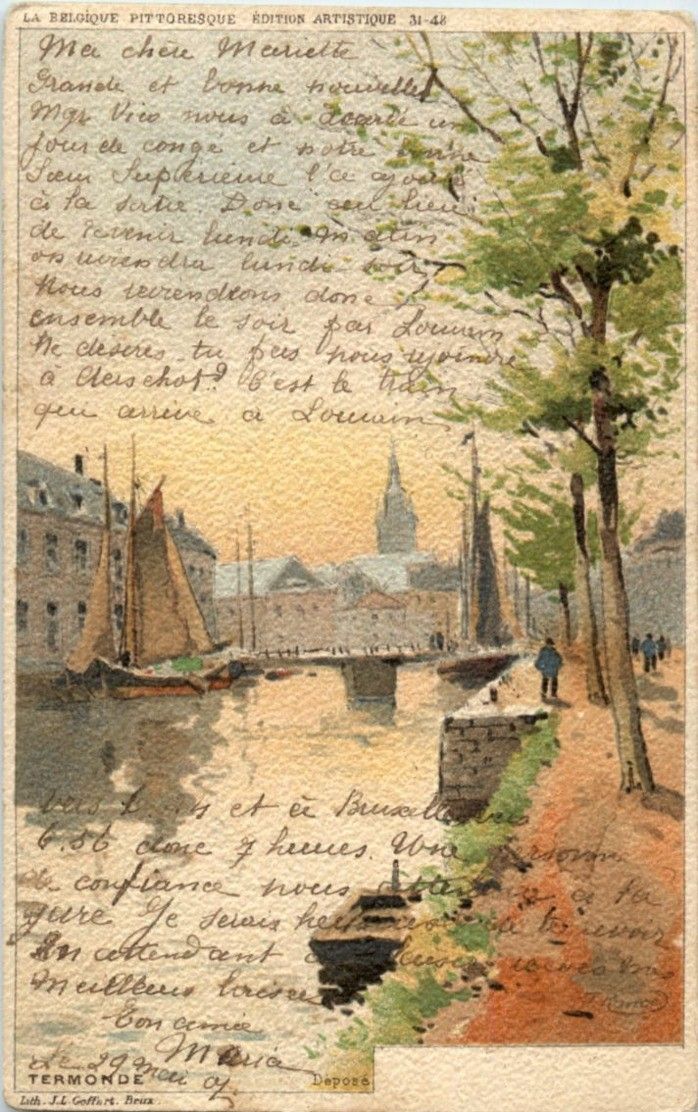 LA BELGIQUE PITTORESQUE ÉDITION ARTISTIQUE 31-48
Ma chère Mariette
Grande et bonne nouvelle!
Mgr Vico nous a
jour de congé et notre bonne
Sœur Supérieure l'a
à la sortie. Donc au lieu
de revenir lundi matin
on reviendra lundi soir
Nous reviendrons donc
ensemble le soir par Louvain
Ne désires-tu pas nous rejoindre
à Aerschot? C'est le train
qui arrive à Louvain
vers et à Bruxelles vers
6.56 donc 7 heures. Une personne
de confiance nous à la
gare Je serais de te revoir
En attendant
Meilleurs baisers
Ton amie
Maria
Le 29 mai
TERMONDE
Déposé
Lith. J.L. Goffart. Brux.